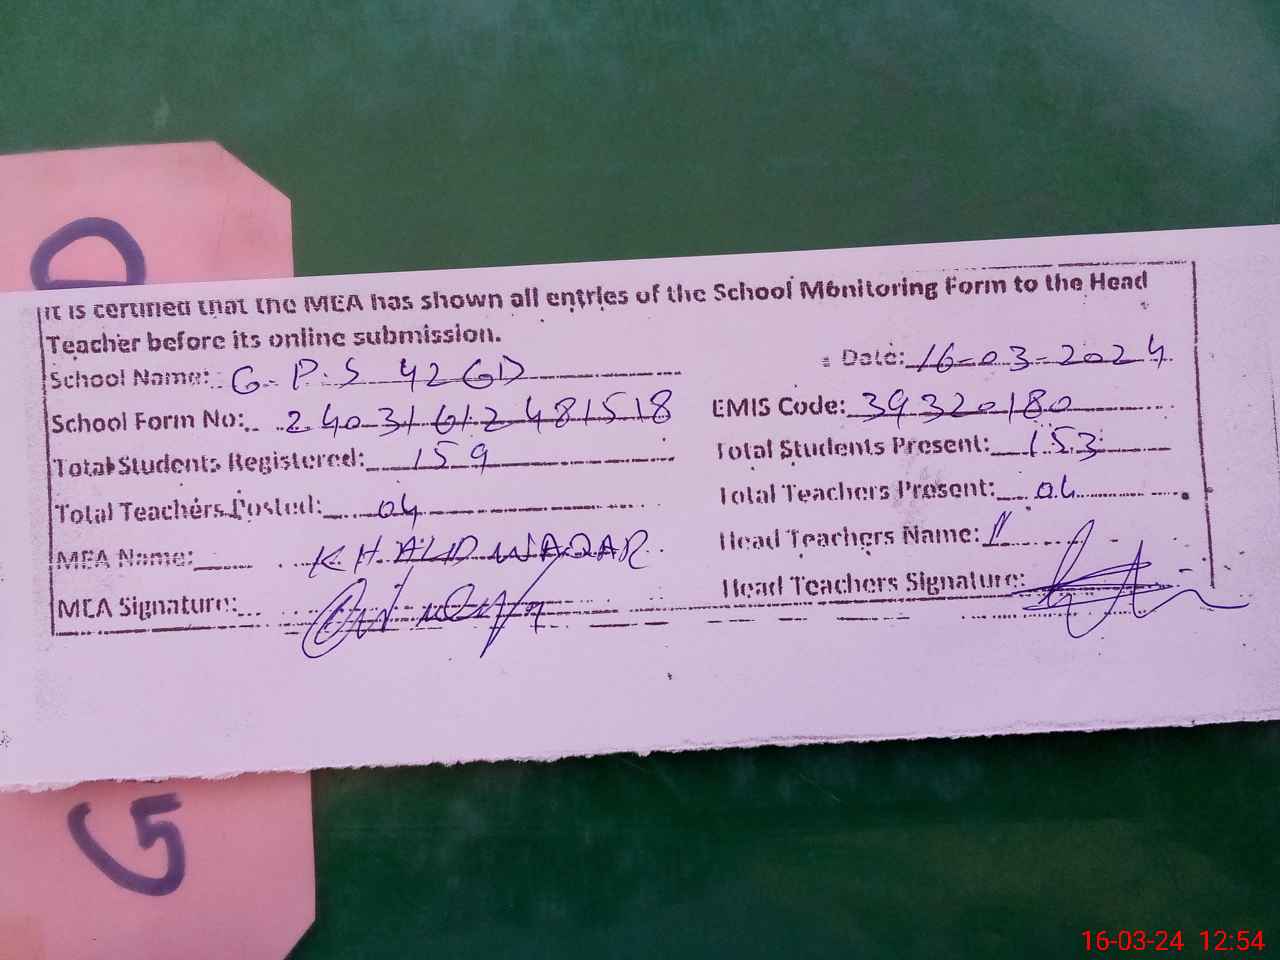 It is certified that the MEA has shown all entries of the School Monitoring Form to the Head
Teacher before its online submission.
School Name: G.P.S 42 GD Date: 16-03-2024
School Form No: 2403161248 1518 EMIS Code: 39320180
Total Students Registered: 159 Total Students Present: 153
Total Teachers Posted: 04 Total Teachers Present: 04
MEA Name: KHALID WAQAR Head Teachers Name:
MEA Signature: Head Teachers Signature:
G D
16-03-24 12:54